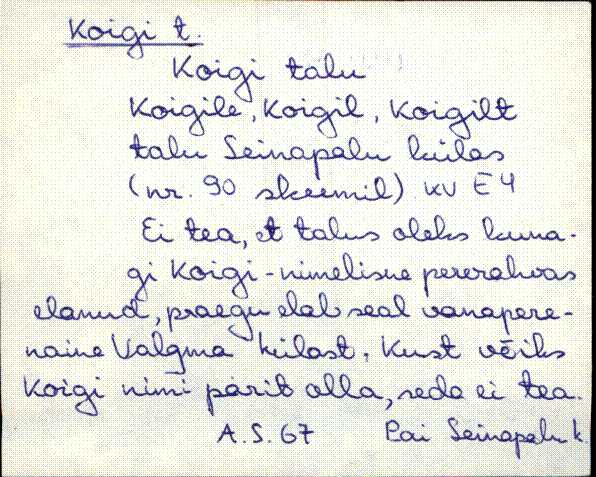 Koigi t.
Koigi talu
Koigile, Koigil, Koigilt
talu Seinapalu külas
(nr. 90 skeemil) KV E4
Ei tea, et talus oleks kuna-
gi Koigi-nimelisne pererahvas
elanud, praegu elab seal vanapere-
naine Valgma külast. Kust võiks
Koigi nimi pärit olla, seda ei tea.
A.S. 67 Pai Seinapalu k.